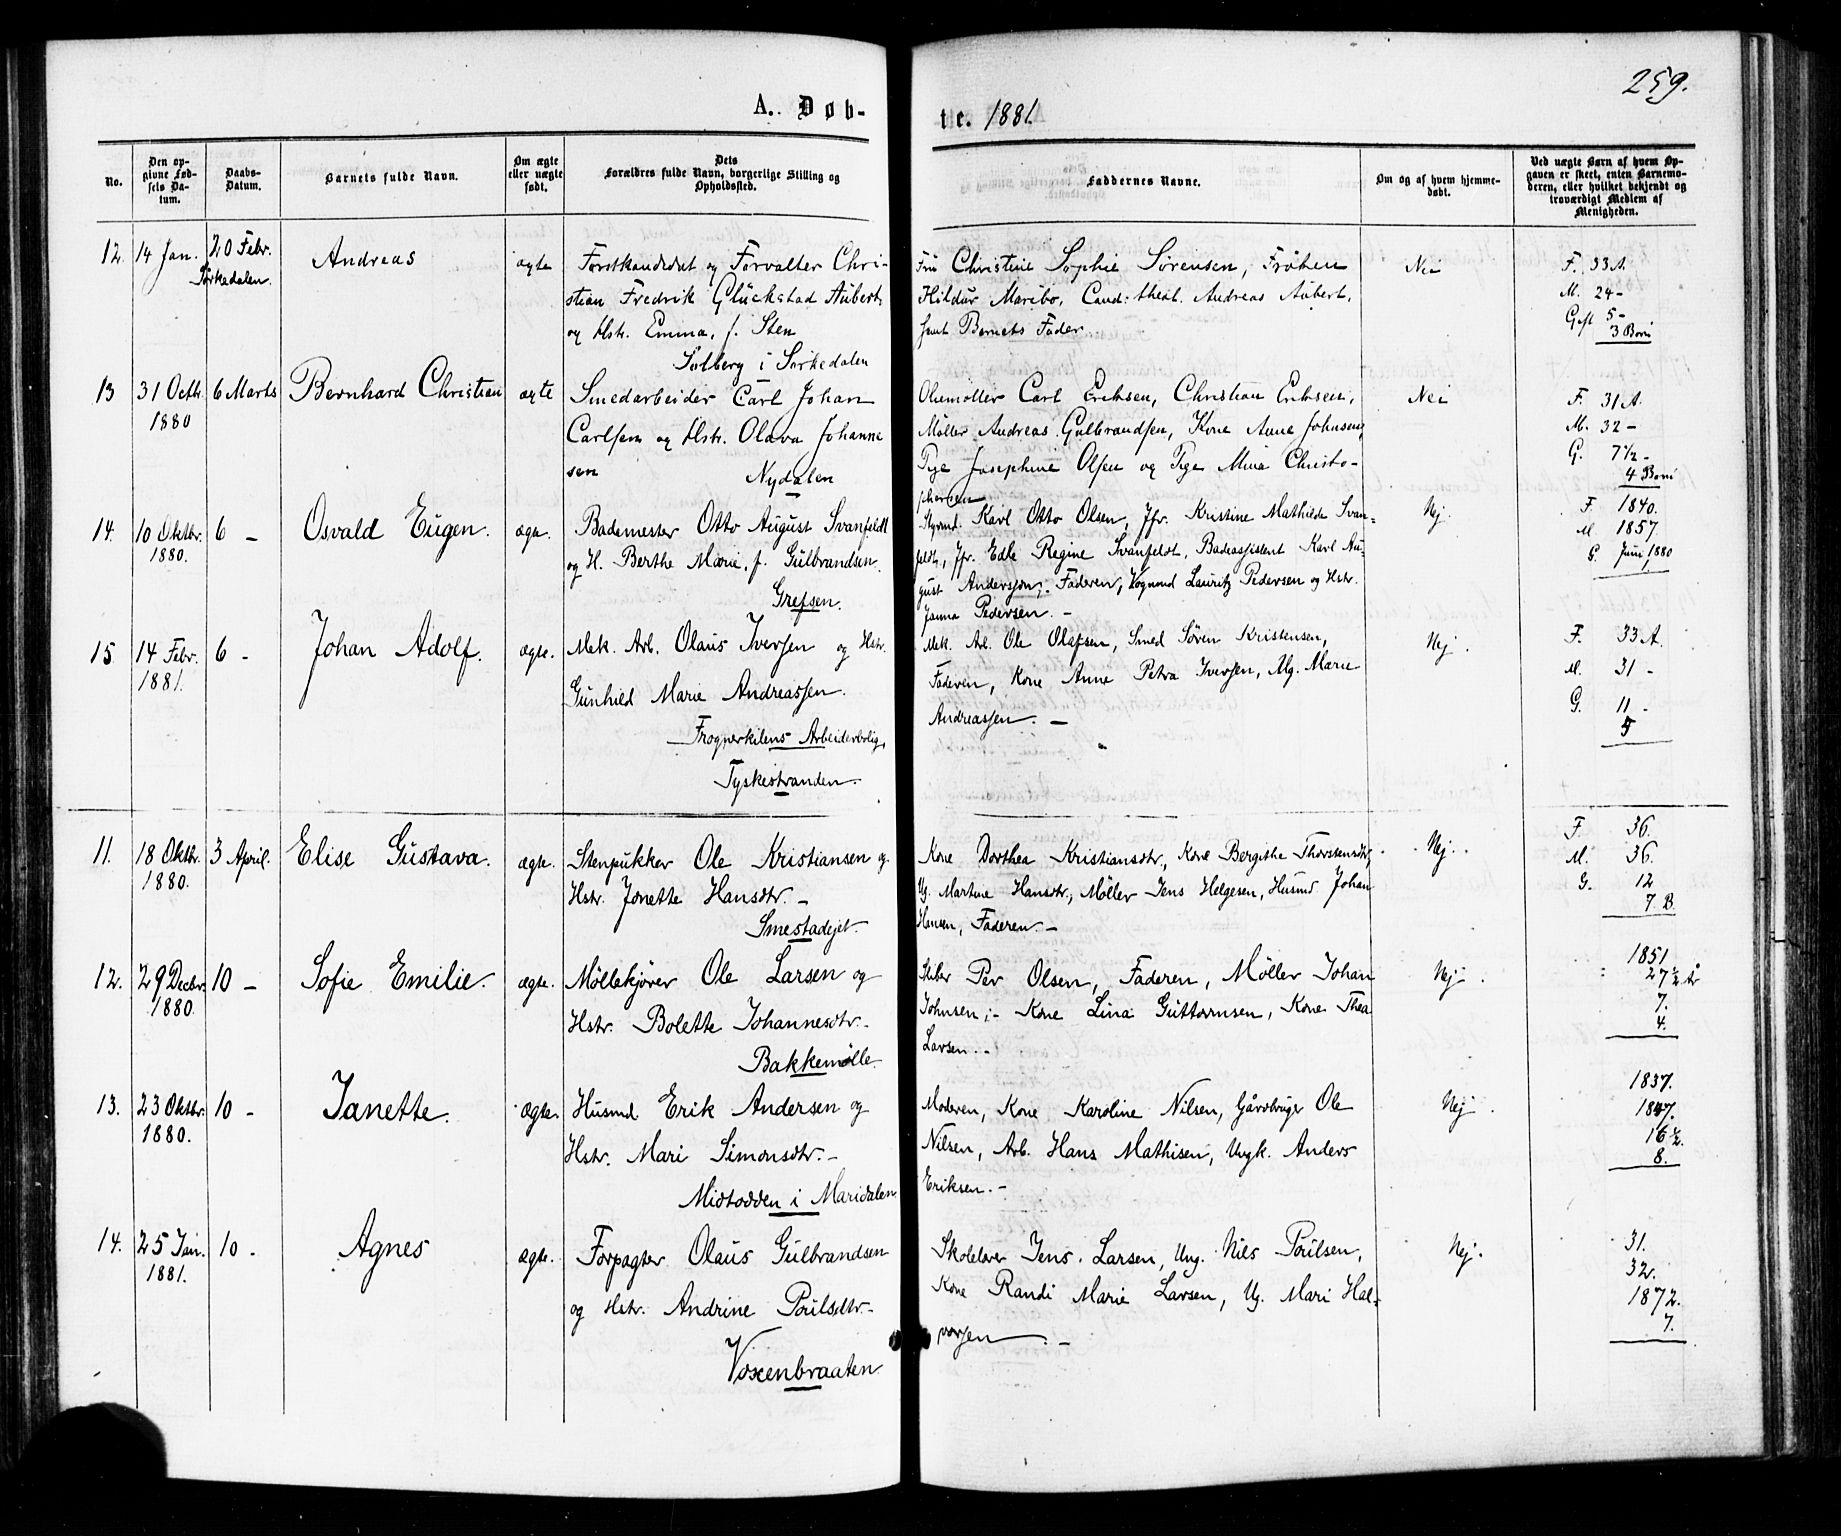 259.
A. Døb-
te. 1881.
No.
Den op-
givne Fød-
sels Da-
tum.
Daabs-
Datum.
Barnets fulde Navn.
Om ægte
eller uægte
født.
Dets
Forældres fulde Navn, borgerlige Stilling og
Opholdssted.
Faddernes Navne.
Om og af hvem hjemme-
døbt.
Ved uægte Børn af hvem Op-
gaven er skeet, enten Barnemo-
deren, eller hvilket bekjendt og
troværdigt Medlem af
Menigheden.
12. 14 Jan. 20 Febr. Andreas ægte Forstkandidat og Forvalter Chri-
Sørkedalen.
stian Fredrik Glückstad Aubert
og Hstr. Emma, f. Sten
Solberg i Sørkedalen
Fru Christine Sophie Sørensen, Frøken
Hildur Maribo, Cand: theol. Andreas Aubert,
samt Barnets Fader.
Nei
F. 33 A.
M. 24 -
Gift 5 -
3 Børn
13 31 Octbr. 6 Marts Bernhard Christian ægte Smedarbeider Carl Johan
1880
Carlsen og Hstr. Olava Johanne
sen
Nydalen
Oliemøller Carl Eriksen, Christian Eriksen,
Møller Andreas Gulbrandsen, Kone Anne Johnsen,
Pige Josephine Olsen og Pige Mina Christo-
phersen
Nei
F. 31 A.
M. 32 -
G. 7 1/2 -
4 Børn
14. 10 Oktbr. 6 - Osvald Eugen. ægte. Bademester Otto August Svanfeldt
1880.
og H. Berthe Marie, f. Gulbrandsen.
Grefsen.
Styrmd. Karl Otto Olsen, Jfr. Kristine Mathilde Svan-
feldt, Jfr. Edle Regine Svanfeldt, Badeassistent Karl Au-
gust Andersson, Faderen, Vognmd Lauritz Pedersen og Hstr.
Janna Pedersen. -
Nej.
F. 1840.
M 1857
G. Juni 1880
15. 14 Febr. 6 - Johan Adolf. ægte. Mek. Arb. Olaus Iversen og Hstr.
1881.
Gunhild Marie Andreassen.
Frognerkilens Arbeiderbolig,
Tyskestranden.
Mek. Arb. Ole Olafsen, Smed Søren Kristensen,
Faderen, Kone Anne Petra Iversen, Ug. Marie
Andreassen. -
Nej.
F. 33 A.
M. 31 -
G. 11 -
5
11. 18 Oktbr. 3 April. Elise Gustava. ægte. Stenpukker Ole Kristiansen og
1880.
Hstr. Jonette Hansdtr. -
Smestadejet.
Kone Dorthea Kristiansdtr., Kone Bergithe Thorstensdtr.,
Ug. Martine Hansdtr., Møller Jens Helgesen, Husmd Johan
Hansen, Faderen. -
Nej.
F. 36.
M. 36.
G. 12
7. B.
12. 29 Decbr. 10 - Sofie Emilie. ægte. Møllekjører Ole Larsen og
1880.
Hstr. Bolette Johannesdtr. -
Bakkemølle.
Per Olsen, Faderen, Møller Johan
Johnsen, - Kone Lina Guttormsen, Kone Thea
Larsen. -
Nej.
1851
27 1/2 År
7.
4.
13. 23 Oktbr. 10 - Janette. ægte. Husmd Erik Andersen og
1880.
Hstr. Mari Simonsdtr. -
Midtodden i Maridalen
Moderen, Kone Karoline Nilsen, Gårdbruger Ole
Nilsen, Arb. Hans Mathisen, Ungk. Anders
Eriksen. -
Nej.
1837.
1847.
16 1/2.
8.
14. 25 Jan. 10 - Agnes ægte. Forpagter Olaus Gulbrandsen
1881.
og Hstr. Andrine Poulsdtr. -
Voxenbraaten
Skolelærer Jens Larsen, Ung. Nils Poulsen,
Kone Randi Marie Larsen, Ug. Mari Hal-
vorsen. -
Nej.
31.
32.
1872.
7.